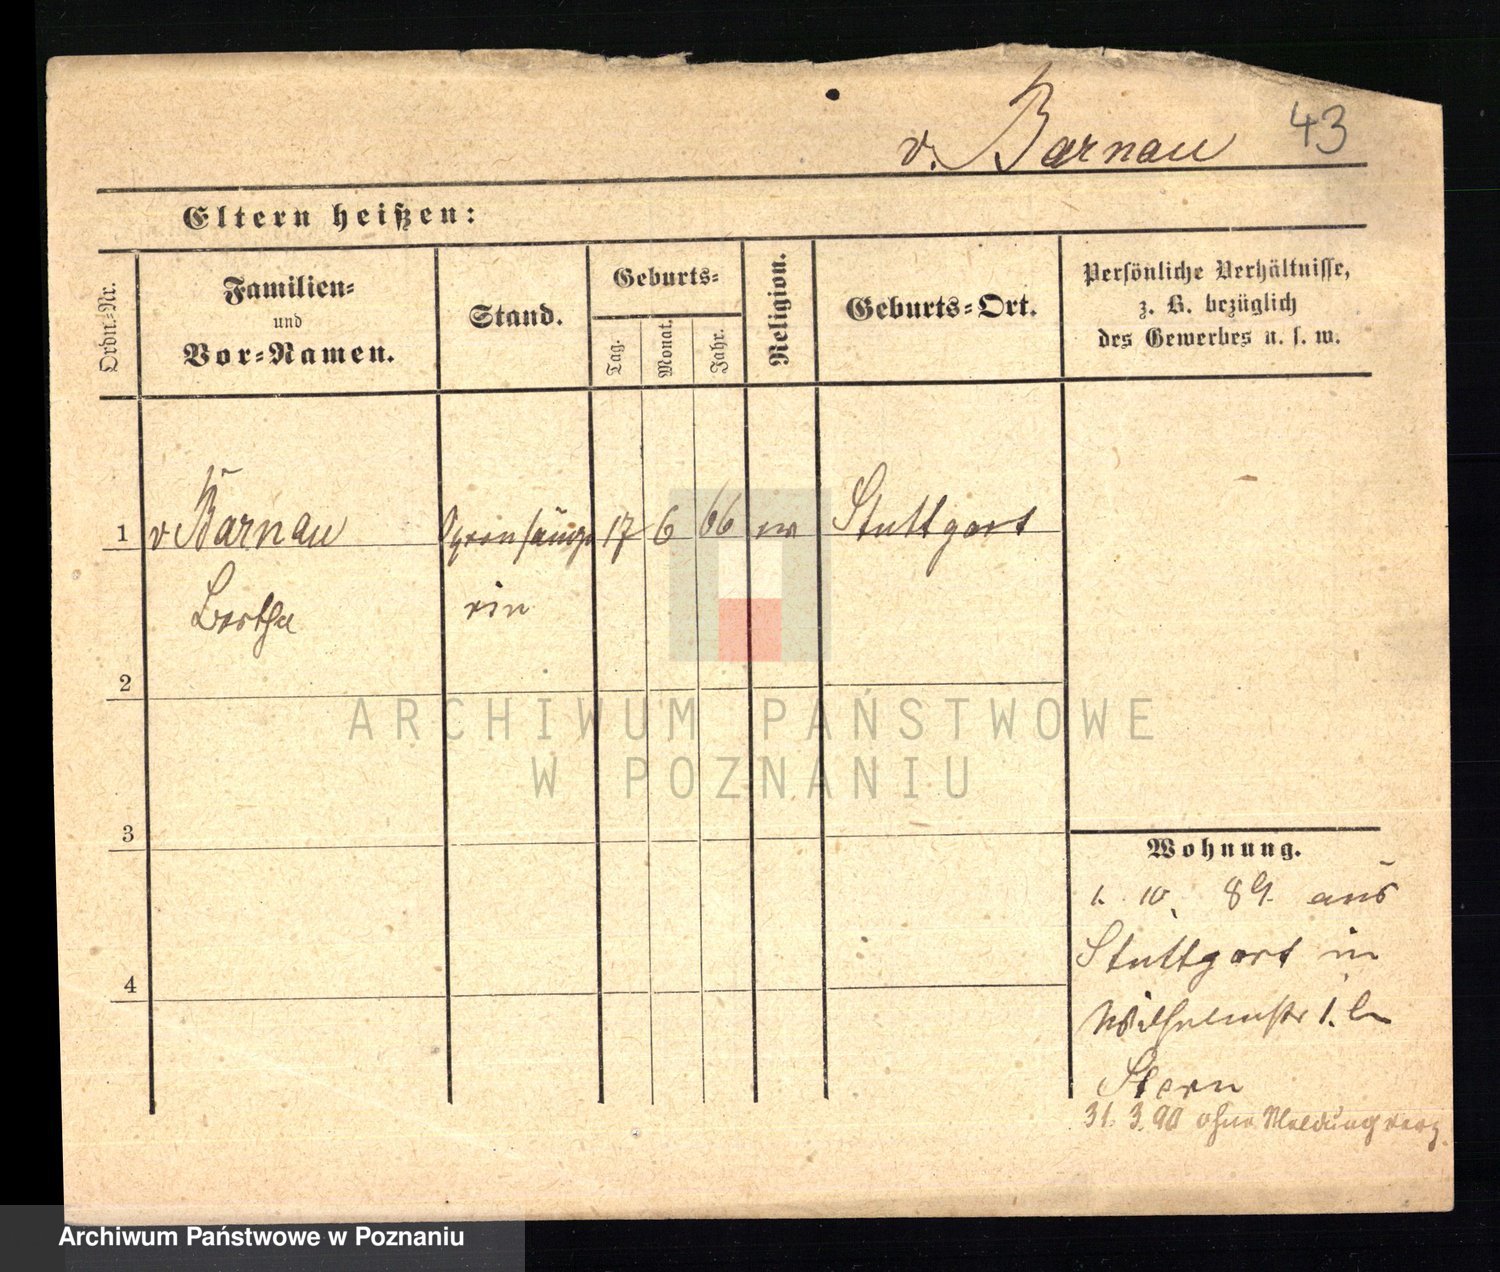 v. Barnau 43
Eltern heißen:
Ordn.-Nr.
Familien-
und
Vor-Namen.
Stand.
Geburts-
Tag.
Monat.
Jahr.
Religion.
Geburts-Ort.
Persönliche Verhältnisse,
z. B. bezüglich
des Gewerbes u. s. w.
1 v Barnau Opernsänge 17 6 66 ev Stuttgart
Bertha rin
2
3
4
Wohnung.
1. 10. 89. aus
Stuttgart in
Wilhelmstr 1. b
Stern
31. 3. 90 ohne Meldung verz.
ARCHIWUM PAŃSTWOWE
W POZNANIU
Archiwum Państwowe w Poznaniu